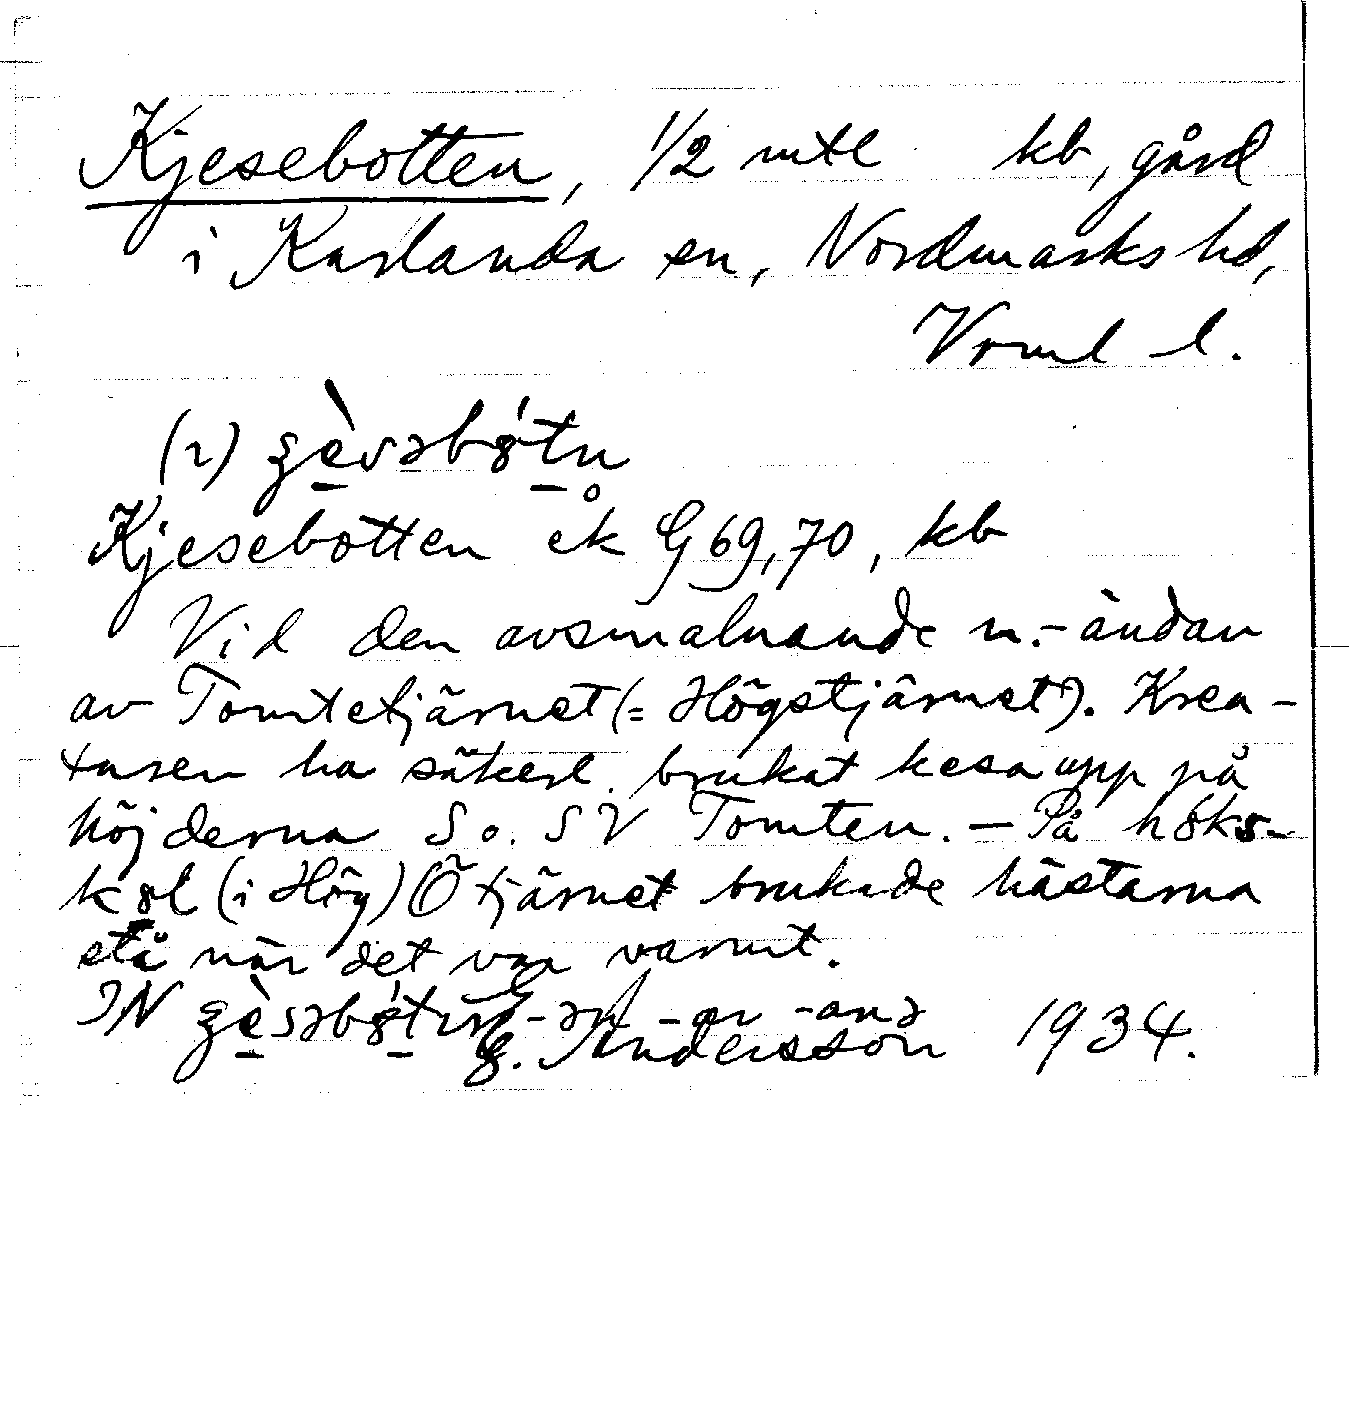 Kjesebotten, 1/2 mtl kb, gård
i Karlanda sn, Nordmarks hd,
Vrml l.
(2)
Kjesebotten åk G 69,70, kb
Vid den avsmalnande n.-ändan
av Tomtetjärnet (= Högstjärnet). Krea-
turen ha säkerl. brukat kesa upp på
höjderna S o. SV Tomten. — På höks-
køl (i Hög) Ötjärnet brukade hästarna
stå när det var varmt.
IN -ar -ana
E. Andersson 1934.